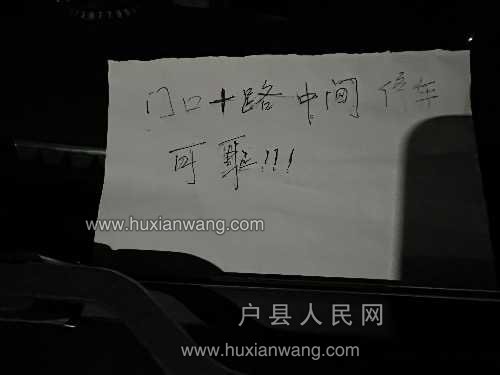 门口+路中间 停车
可 !!!
www.huxianwang.com
户县人民网
www.huxianwang.com